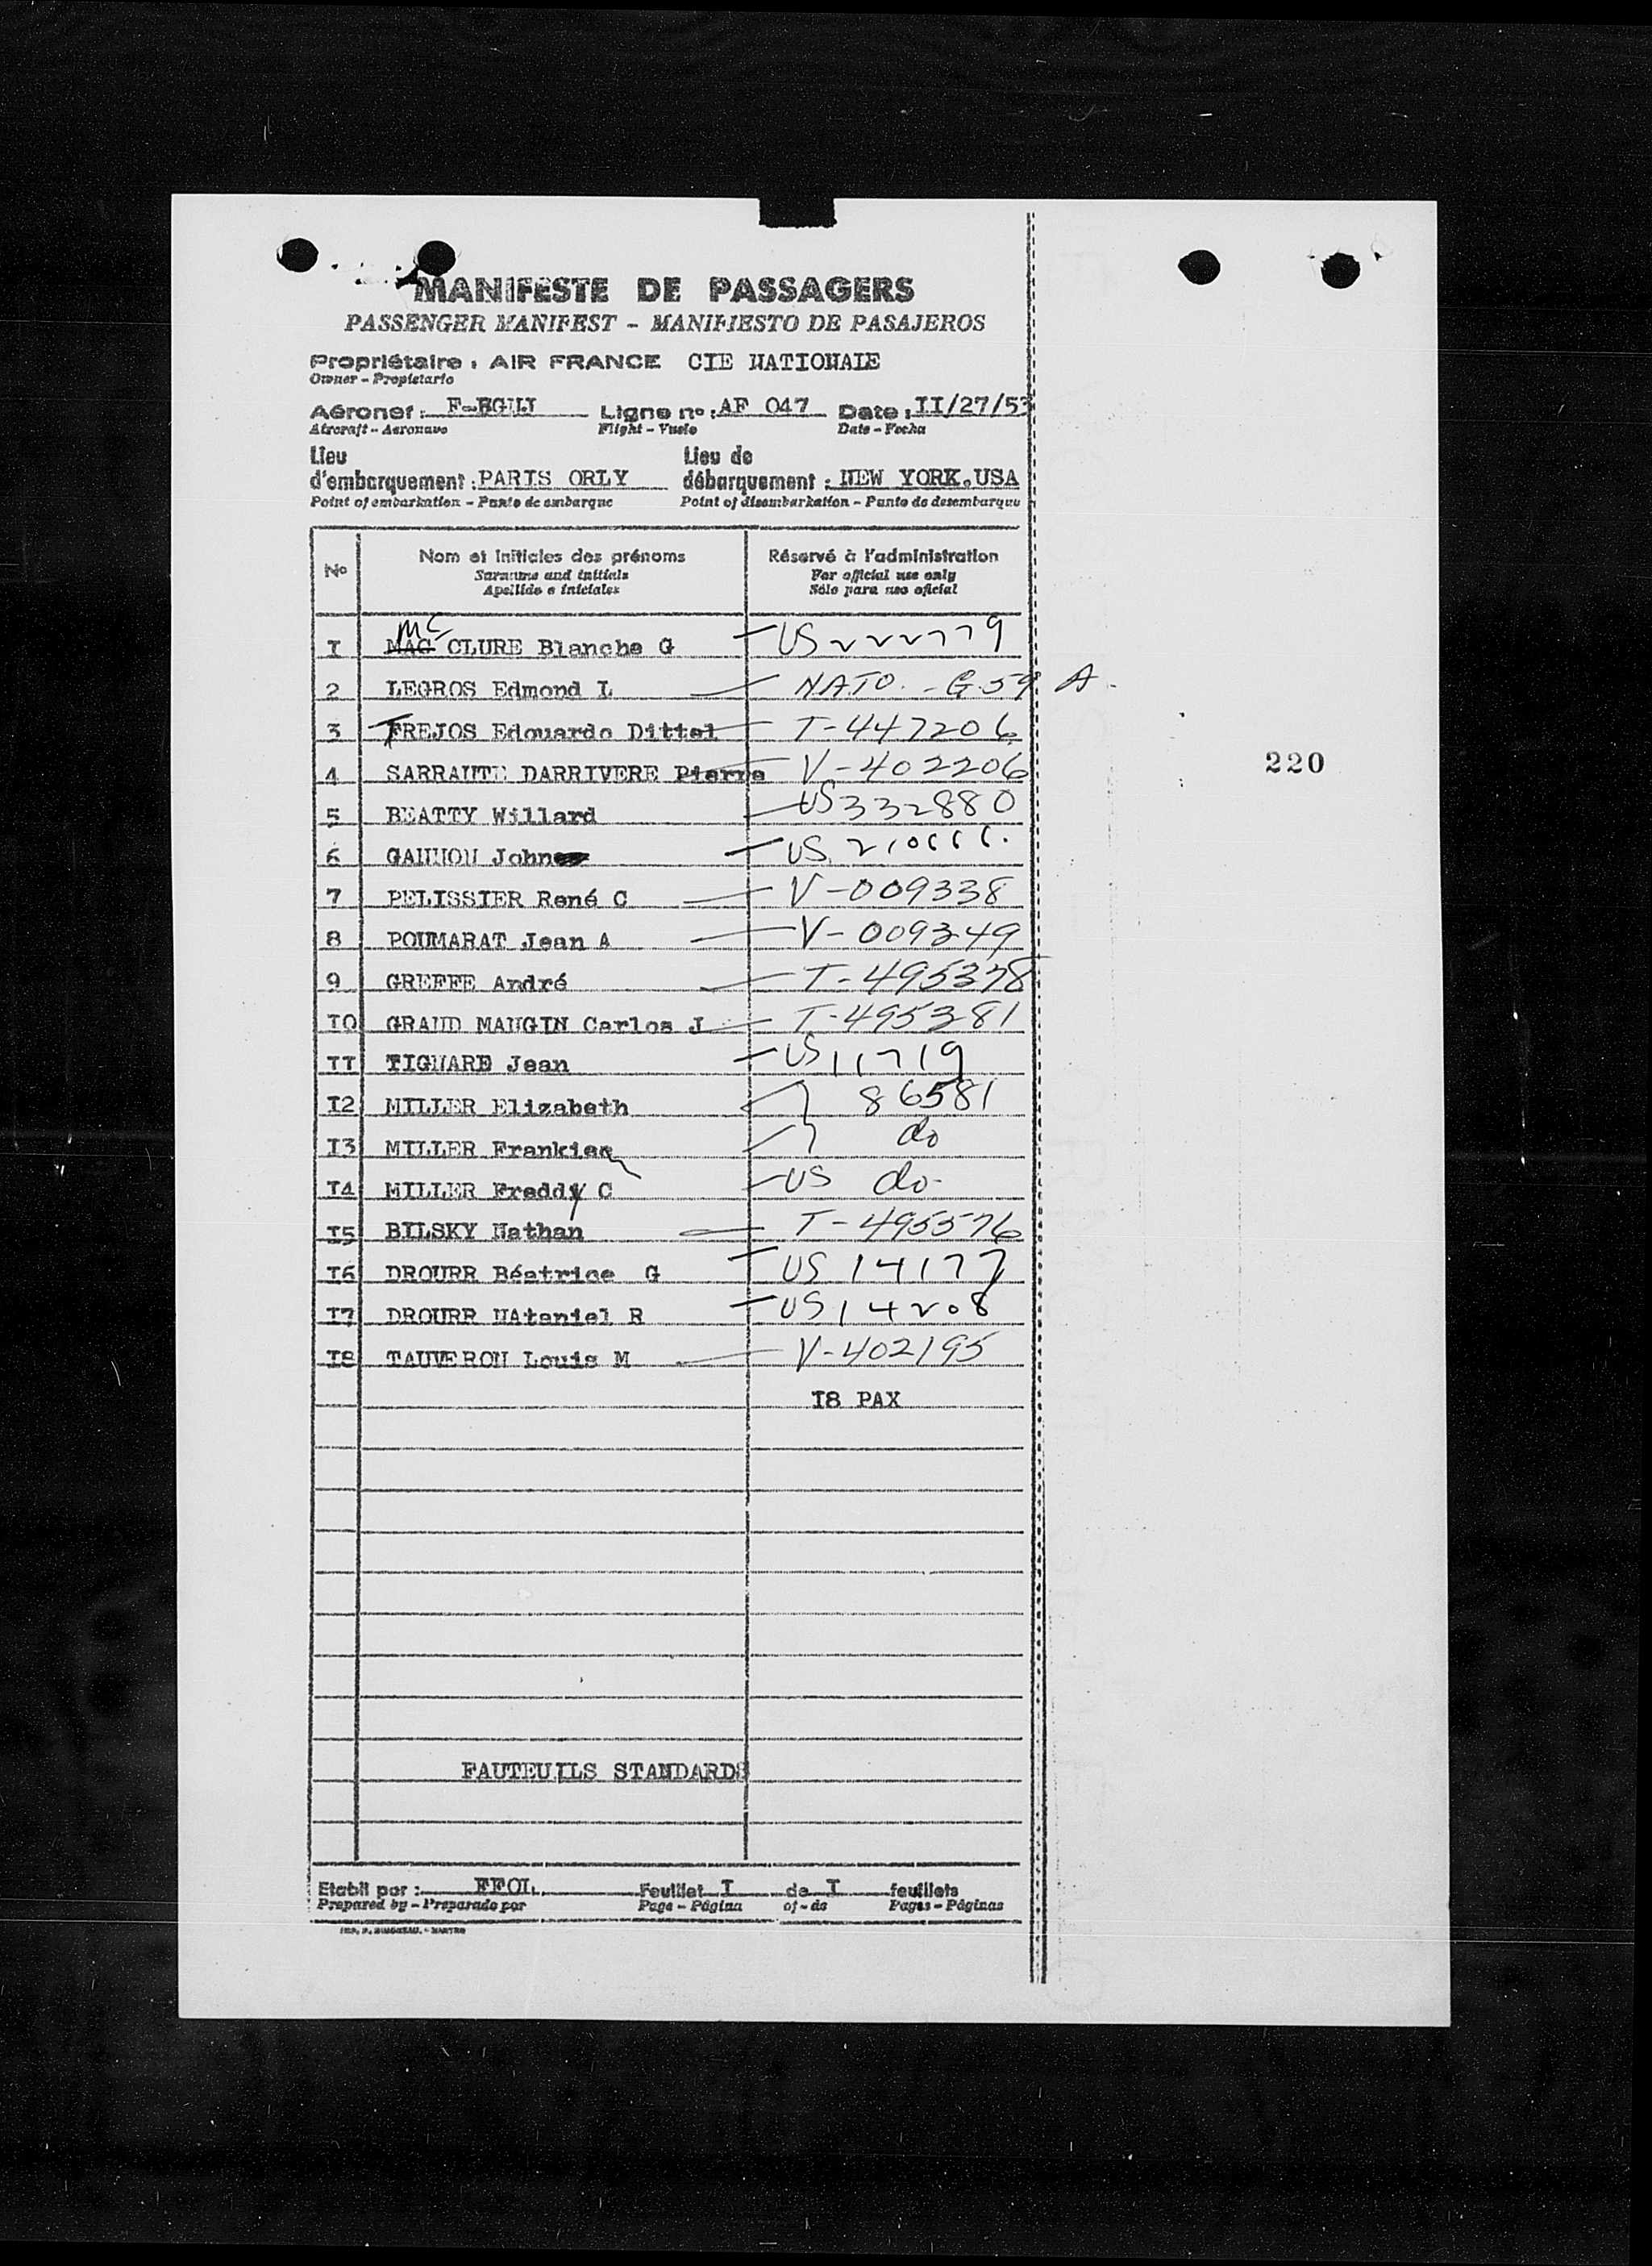 MANIFESTE DE PASSAGERS
PASSENGER MANIFEST - MANIFIESTO DE PASAJEROS
Propriétaire : AIR FRANCE CIE NATIONALE
Owner - Propietario
Aéronef : F-BGNJ Ligne no : AF 047 Date : II/27/53
Aircraft - Aeronave Flight - Vuelo Date - Fecha
Lieu d'embarquement : PARIS ORLY Lieu de débarquement : NEW YORK.USA
Point of embarkation - Punto de embarque Point of disembarkation - Punto de desembarque
No Nom et initiales des prénoms Réservé à l'administration
Surname and initials For official use only
Apellido e iniciales Sólo para uso oficial
I MAC Mc CLURE Blanche G - US 222779
2 LEGROS Edmond L NATO. - G-59 A-
3 TREJOS Edouardo Dittel T-447206
4 SARRAUTE DARRIVERE Pierre V-402206
5 BEATTY Willard US 332880
6 GANNON John - US 210666.
7 PELISSIER René C V-009338
8 POUMARAT Jean A V-009349
9 GREFFE André T-495378
I0 GRAND MANGIN Carlos J T-495381
II TIGNARE Jean - US 11719
I2 MILLER Elizabeth 86581
I3 MILLER Frankie do
I4 MILLER Freddy C - US do-
I5 BILSKY Nathan T-495576
I6 DROURR Béatrice G - US 14177
I7 DROURR NAtaniel R - US 14208
I8 TAUVERON Louis M V-402195
I8 PAX
FAUTEUILS STANDARDS
Etabli par : FFOL Feuillet I de I feuillets
Prepared by - Preparado por Page - Página of - de Pages - Páginas
220